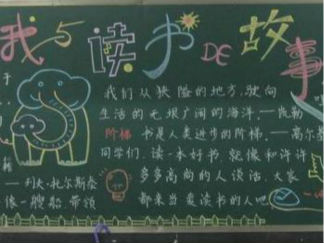 我与读书DE故事
我们从狭隘的地方,驶向
生活的无垠广阔的海洋。—凯勒
阶梯 书是人类进步的阶梯。——高尔基
同学们,读一本好书就像和许许
多多高尚的人谈话,大家
都来当爱读书的人吧
于
籍
——列夫·托尔斯泰
像一艘船,带领